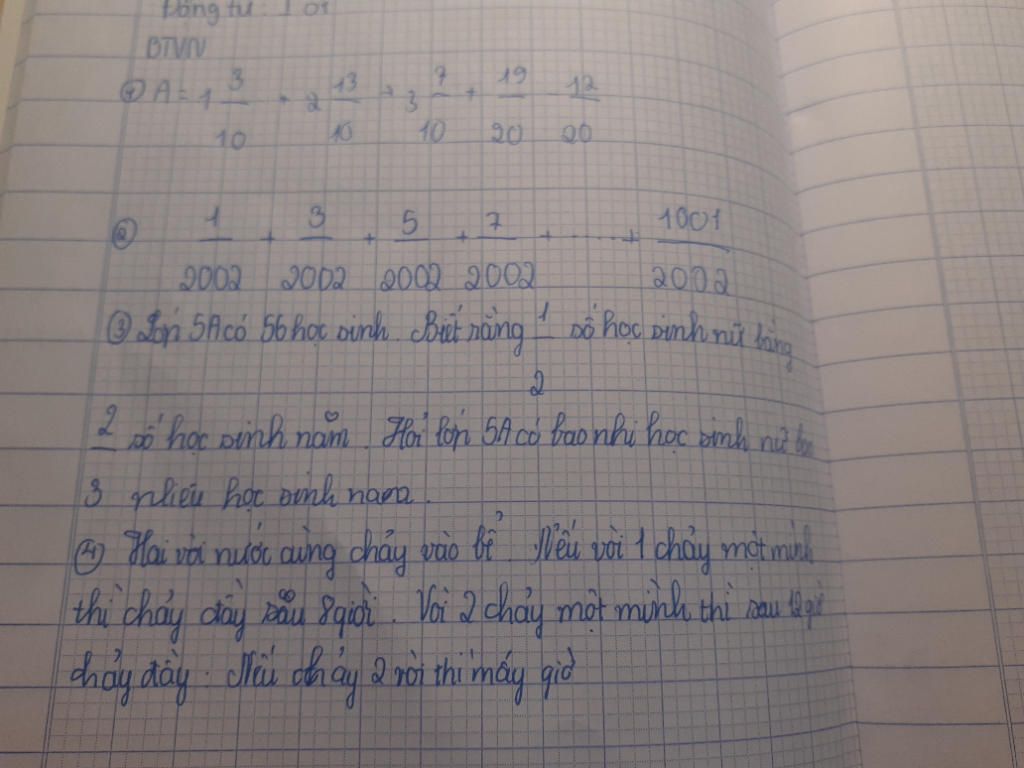 Đồng tử :
BTVN
① A = 1 3/10 + 2 13/10 + 3 7/10 + 19/20 12/20
② 1/2002 + 3/2002 + 5/2002 + 7/2002 + ...... + 1001/2002
③ Lớp 5A có 56 học sinh. Biết rằng 1/2 số học sinh nữ bằng
2/3 số học sinh năm. Hỏi lớp 5A có bao nhi học sinh nữ bao
nhiêu học sinh nam.
④ Hai vòi nước cùng chảy vào bể. Nếu vòi 1 chảy một mình
thì chảy đầy sau 8 giời. Vòi 2 chảy một mình thì sau 12 giờ
chảy đầy. Nếu chảy 2 vòi thì mấy giờ